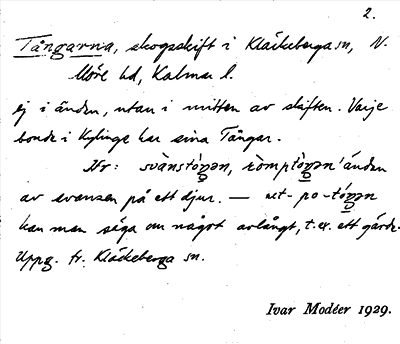 2.
Tångarna, skogsskift i Kläckeberga sn, N.
Möre hd, Kalmar l.
ej i änden, utan i mitten av skiften. Varje
bonde i Kylinge har sina Tångar.
Jfr: svànstóŋən, ròmptóŋən 'änden
av svansen på ett djur. — net- po-tóŋən
kan man säga om något avlångt, t. ex. ett gärde.
Uppg. fr. Kläckeberga sn.
Ivar Modéer 1929.